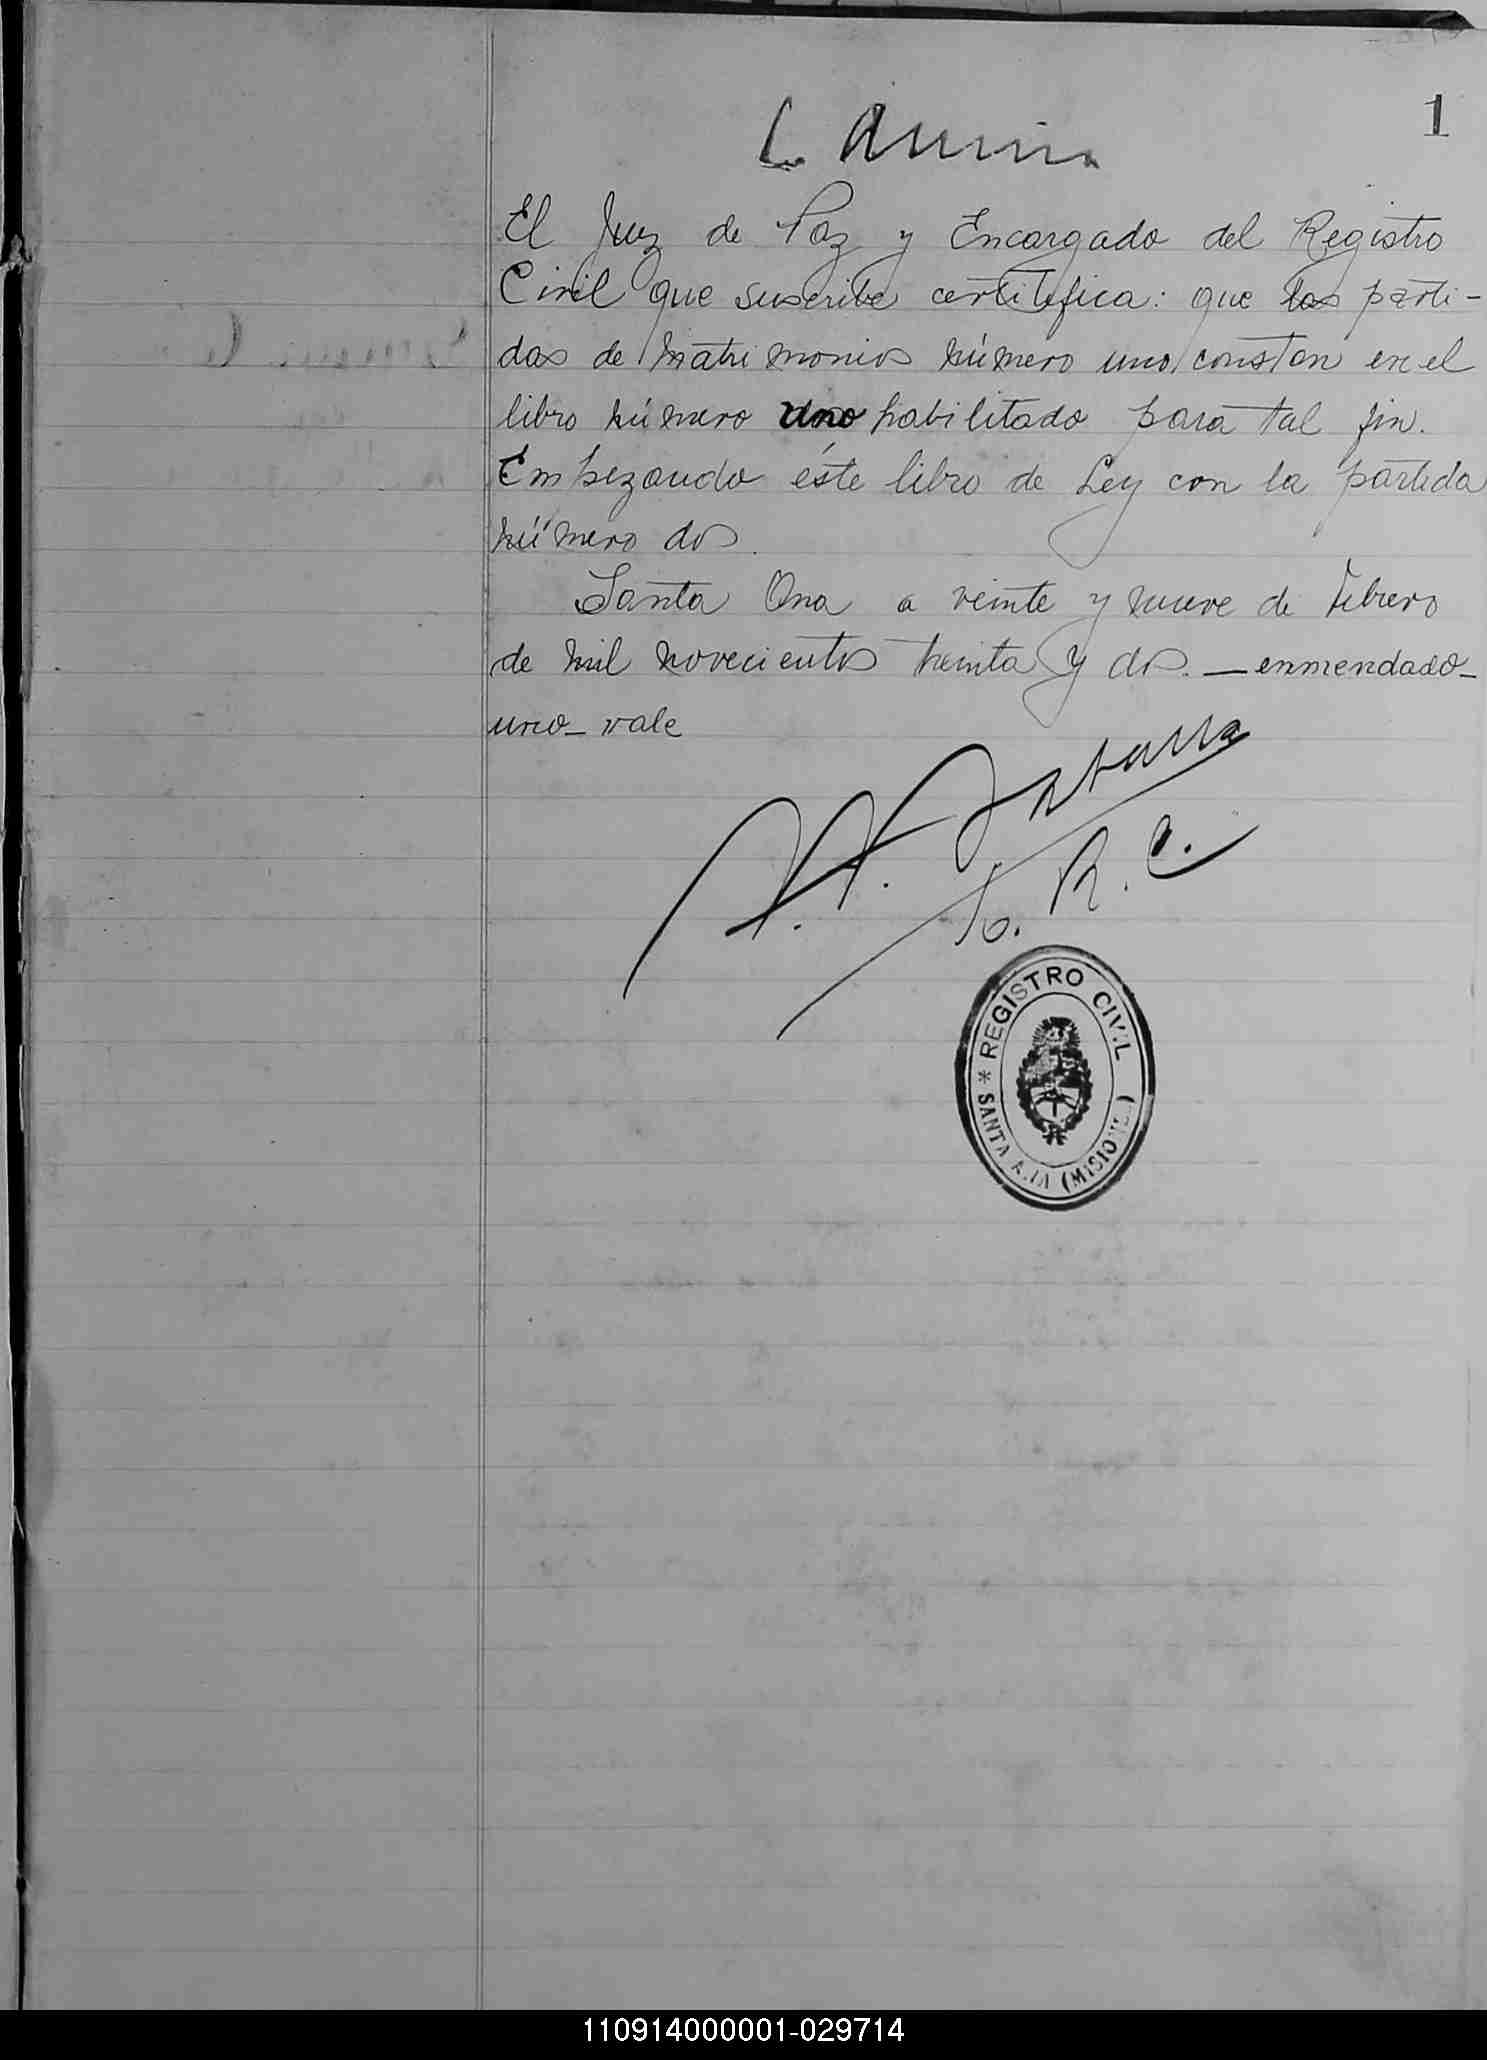 1
El Juez de Paz y Encargado del Registro
Civil que suscribe certitefica: que las parti-
das de matrimonios número uno constan en el
libro número uno habilitado para tal fin.
Empezando éste libro de Ley con la partida
número dos.
Santa Ana a veinte y nueve de Febrero
de mil novecientos treinta y dos. — enmendado—
uno— vale
R. C.
REGISTRO CIVIL
* SANTA ANA (MISIONES)
110914000001-029714